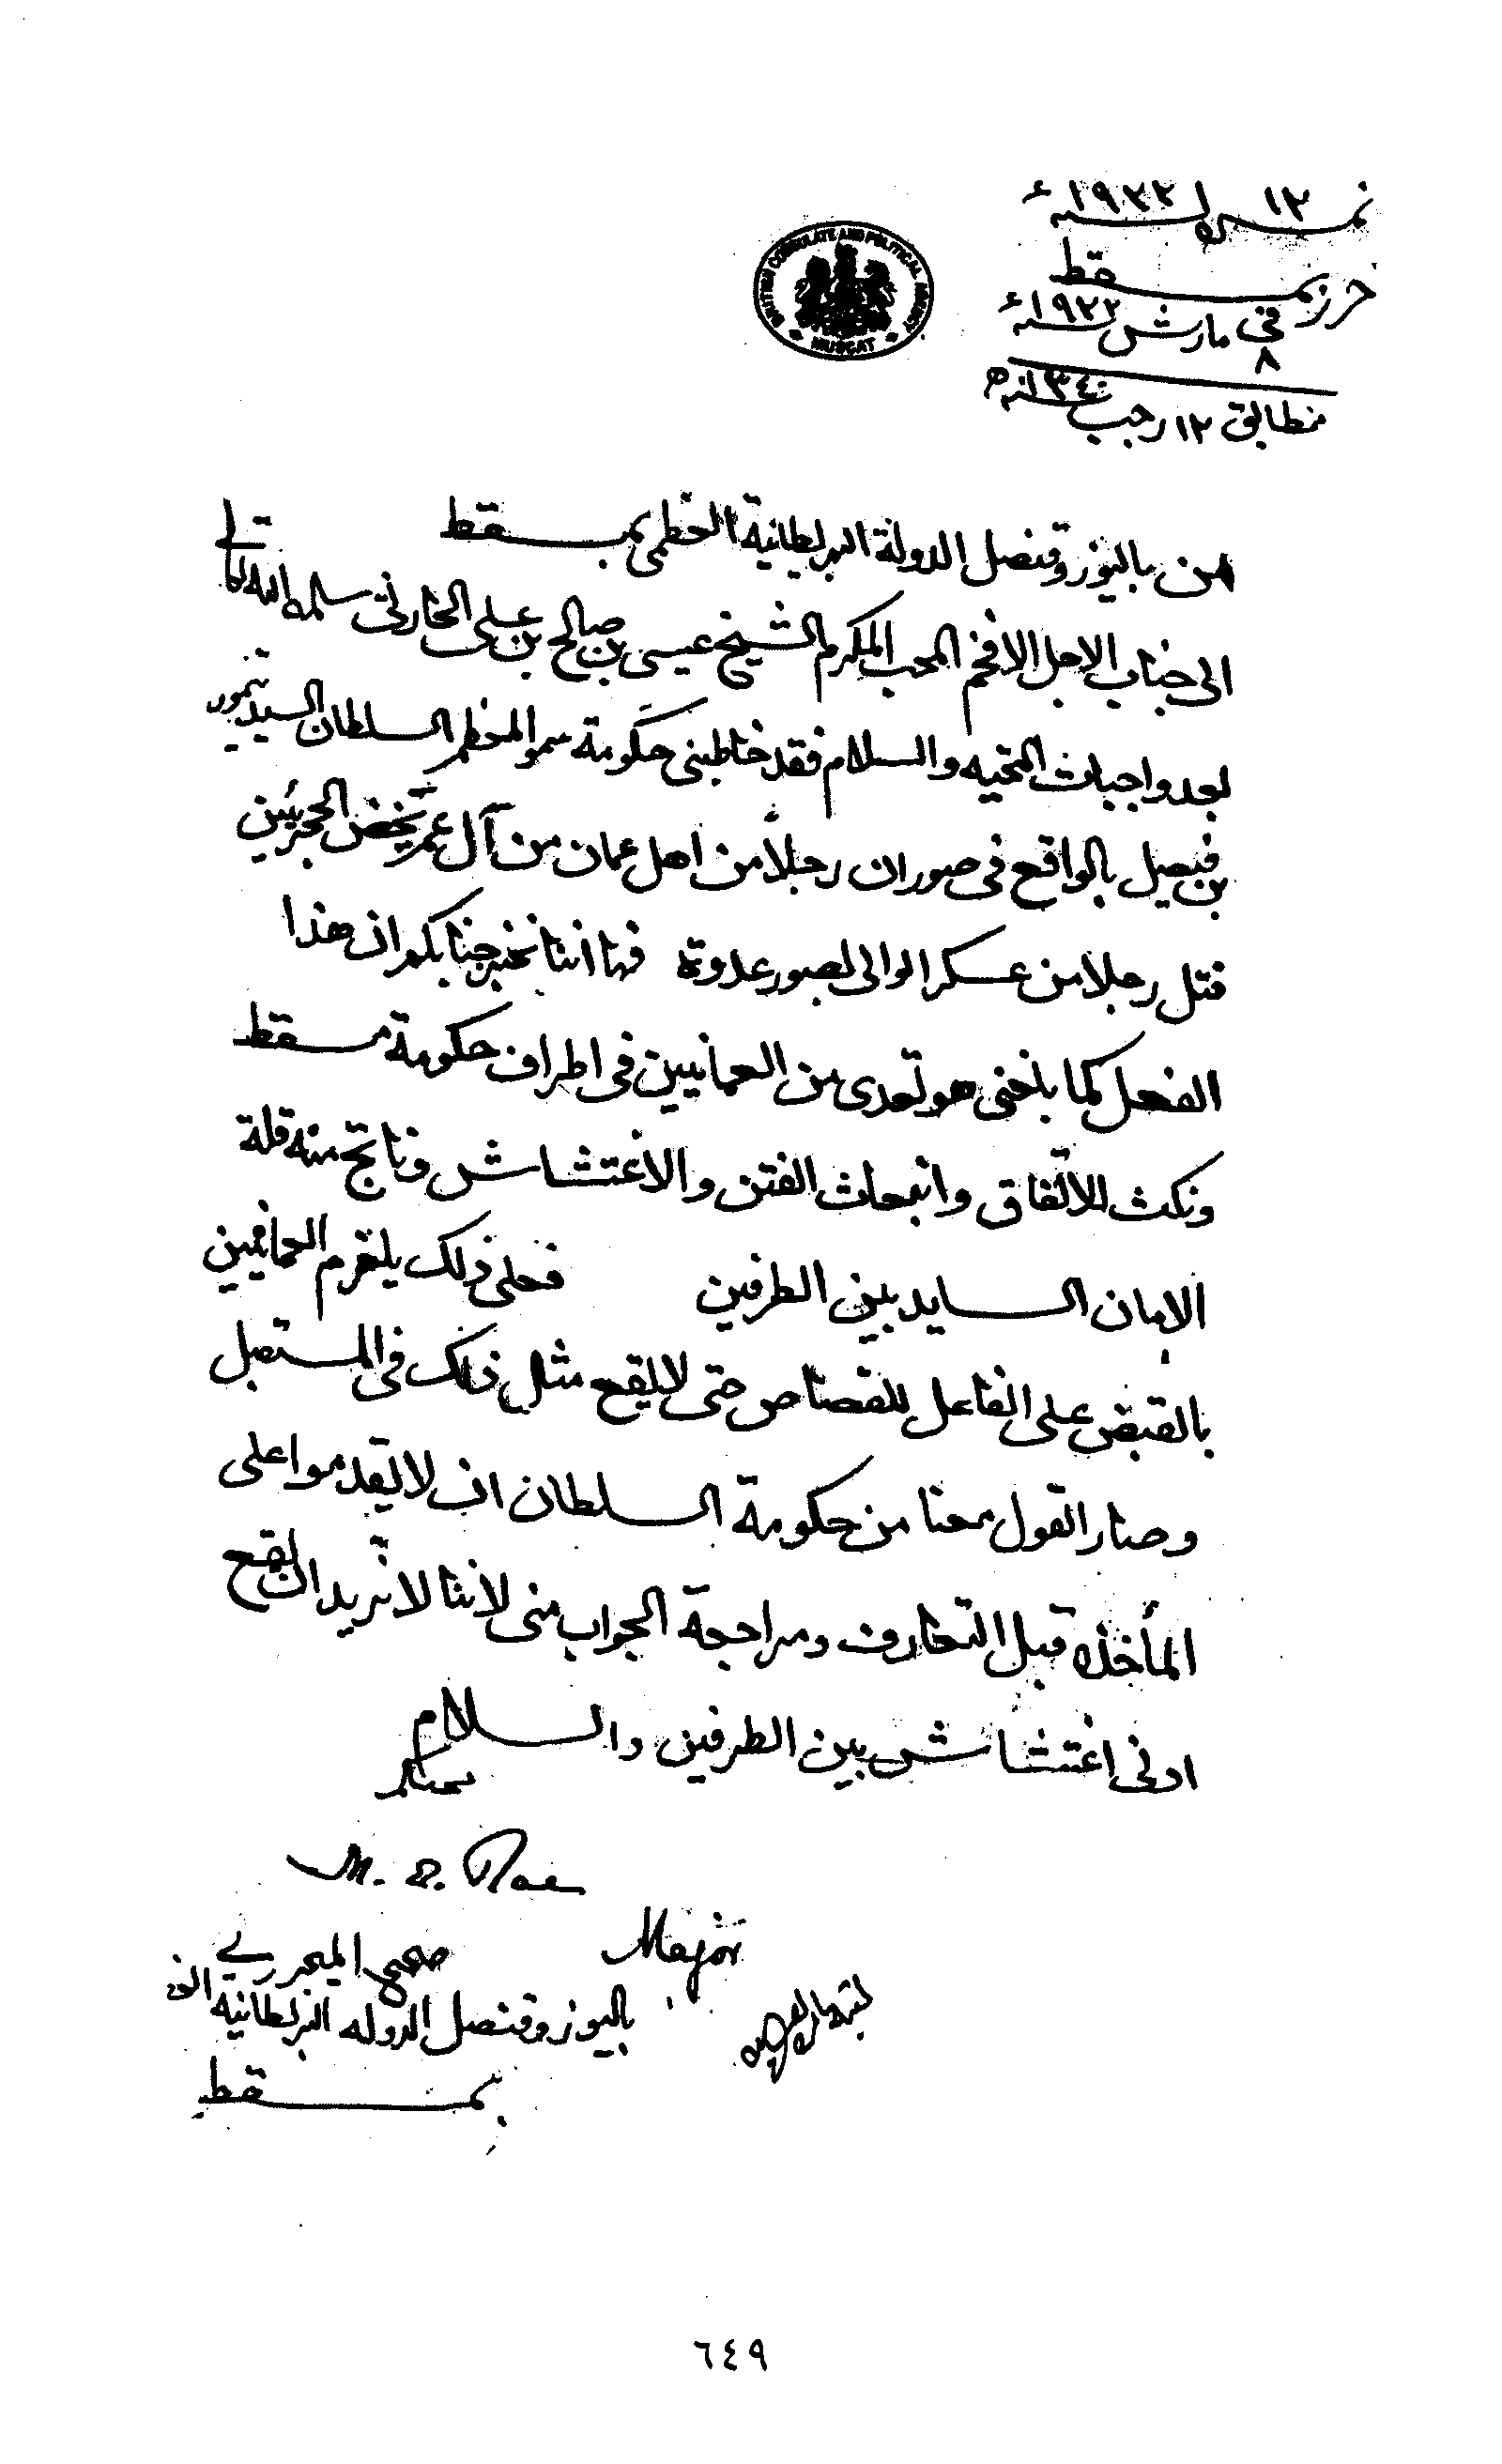 نمـــره ١٢ لسنه ١٩٢٢ء
حرر بمسقط
في ٨ مارش سنه ١٩٢٢ء
مطابق ١٢ رجب سنه ١٣٤٠ه
BRITISH CONSULATE AND POLITICAL AGENCY
MUSCAT
من باليوز وقنصل الدولة البرطانية العظمى بمسقط
الى جناب الاجل الافخم المحب المكرم الشيخ عيسى بن صالح بن علي الحارثي سلمه الله تعالى
بعد واجبات التحيه والسلام فقد خاطبنى حكومة سمو المعظم السلطان السيد تيمور
بن فيصل بالواقع في صور ان رجلاً من اهل عمان من آل عمر تخص الحجريين
قتل رجلا من عسكر الوالى بصور عدوة فها اننا نخبر جنابكم ان هذا
الفعل كما بلغنى هو تعدى من العمانيين فى اطراف حكومة مسقط
ونكث للاتفاق وانبعاث الفتن والاغتشاش وناتج منه قلة
الامان السايد بين الطرفين فعلى ذلك يلتزم العمانيين
بالقبض على الفاعل للقصاص حتى لا يقع مثل ذلك فى المستقبل
وصار القول معنا من حكومة السلطان ان لا يقدموا على
المأخذه قبل التعارف ومراجعة الجواب منى لاننا لا نريد ان يقع
ادنى اغتشاش بين الطرفين والسلام
عليكم
M. E. Rae
Major
صحى الميجر ري
باليوز وقنصل الدوله البرطانيه
بمسقط
٦٤٩